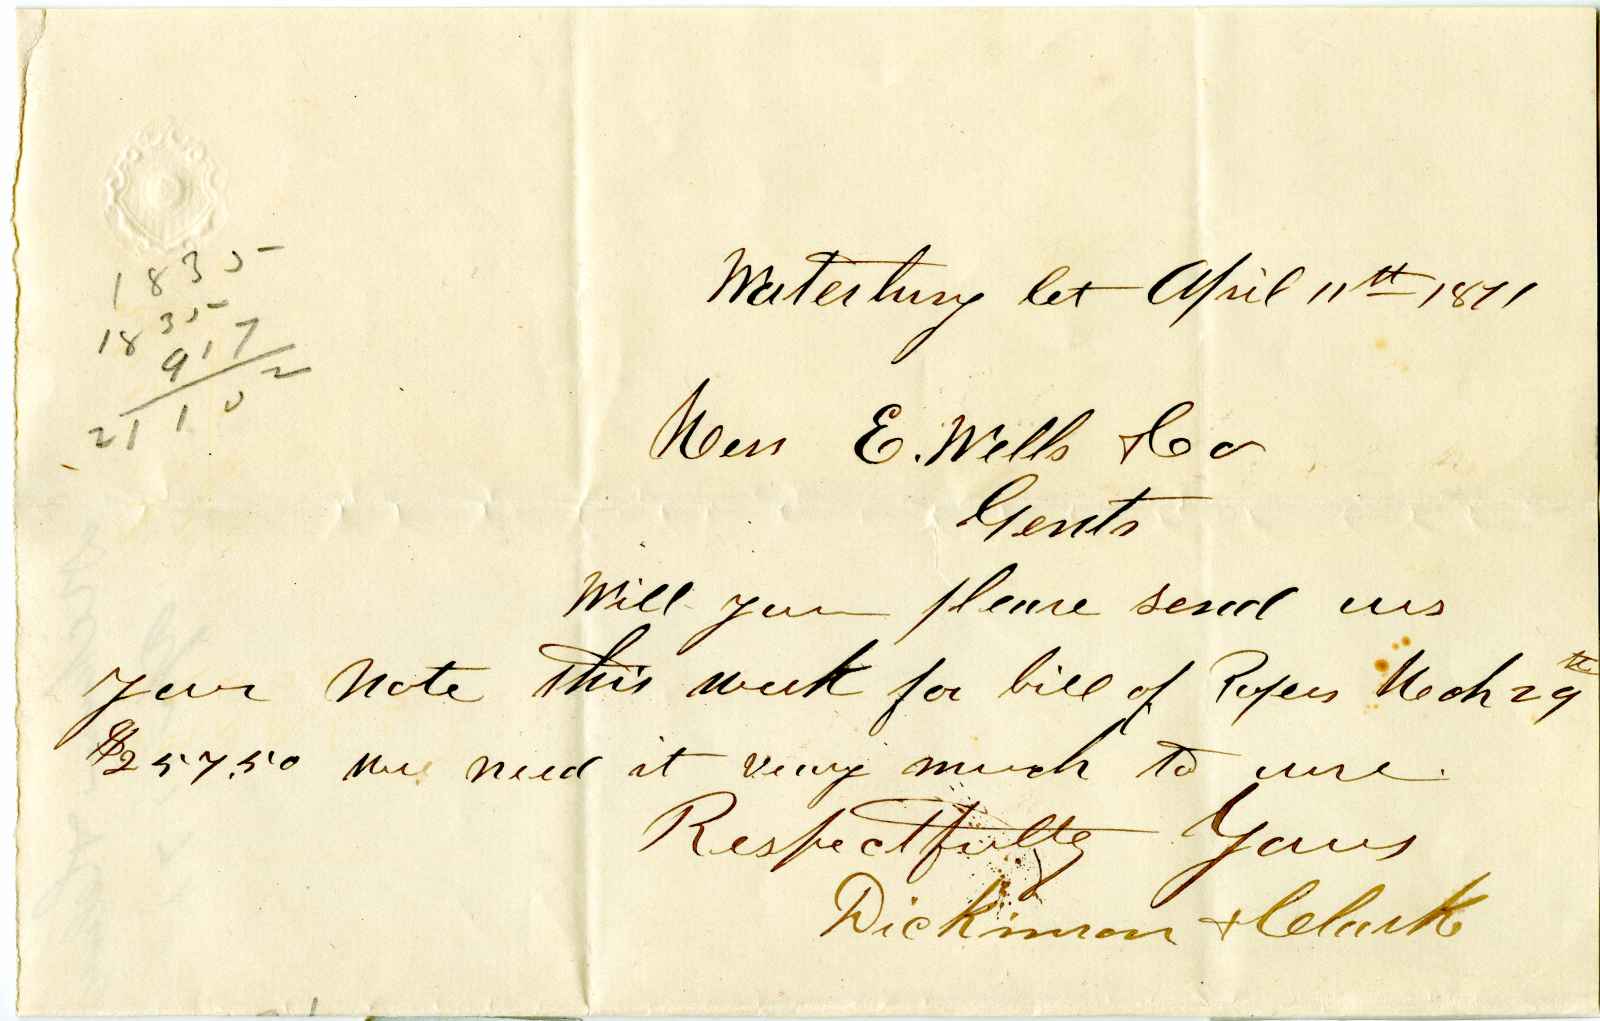 1835
1835
917
21102
Waterbury Ct April 11th 1871
Mess E. Wells & Co
Gents
Will you please send us
your Note this week for bill of Ropes Mch 29th
$257.50 we need it very much to use.
Respectfully Yours
Dickinson & Clark